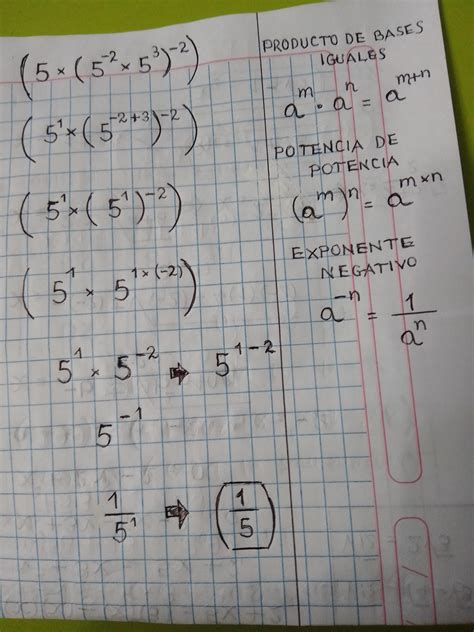 (5 × (5⁻² × 5³)⁻²)
(5¹ × (5⁻²⁺³)⁻²)
(5¹ × (5¹)⁻²)
(5¹ × 5¹ˣ⁽⁻²⁾)
5¹ × 5⁻² ➡ 5¹⁻²
5⁻¹
1/5¹ ➡ (1/5)
PRODUCTO DE BASES
IGUALES
aᵐ · aⁿ = aᵐ⁺ⁿ
POTENCIA DE
POTENCIA
(aᵐ)ⁿ = aᵐˣⁿ
EXPONENTE
NEGATIVO
a⁻ⁿ = 1/aⁿ